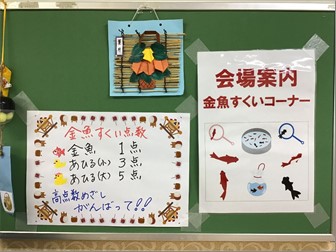 金魚すくい点数
金魚 1点
あひる(小) 3点
あひる(大) 5点
高点数めざし
がんばって!!
会場案内
金魚すくいコーナー